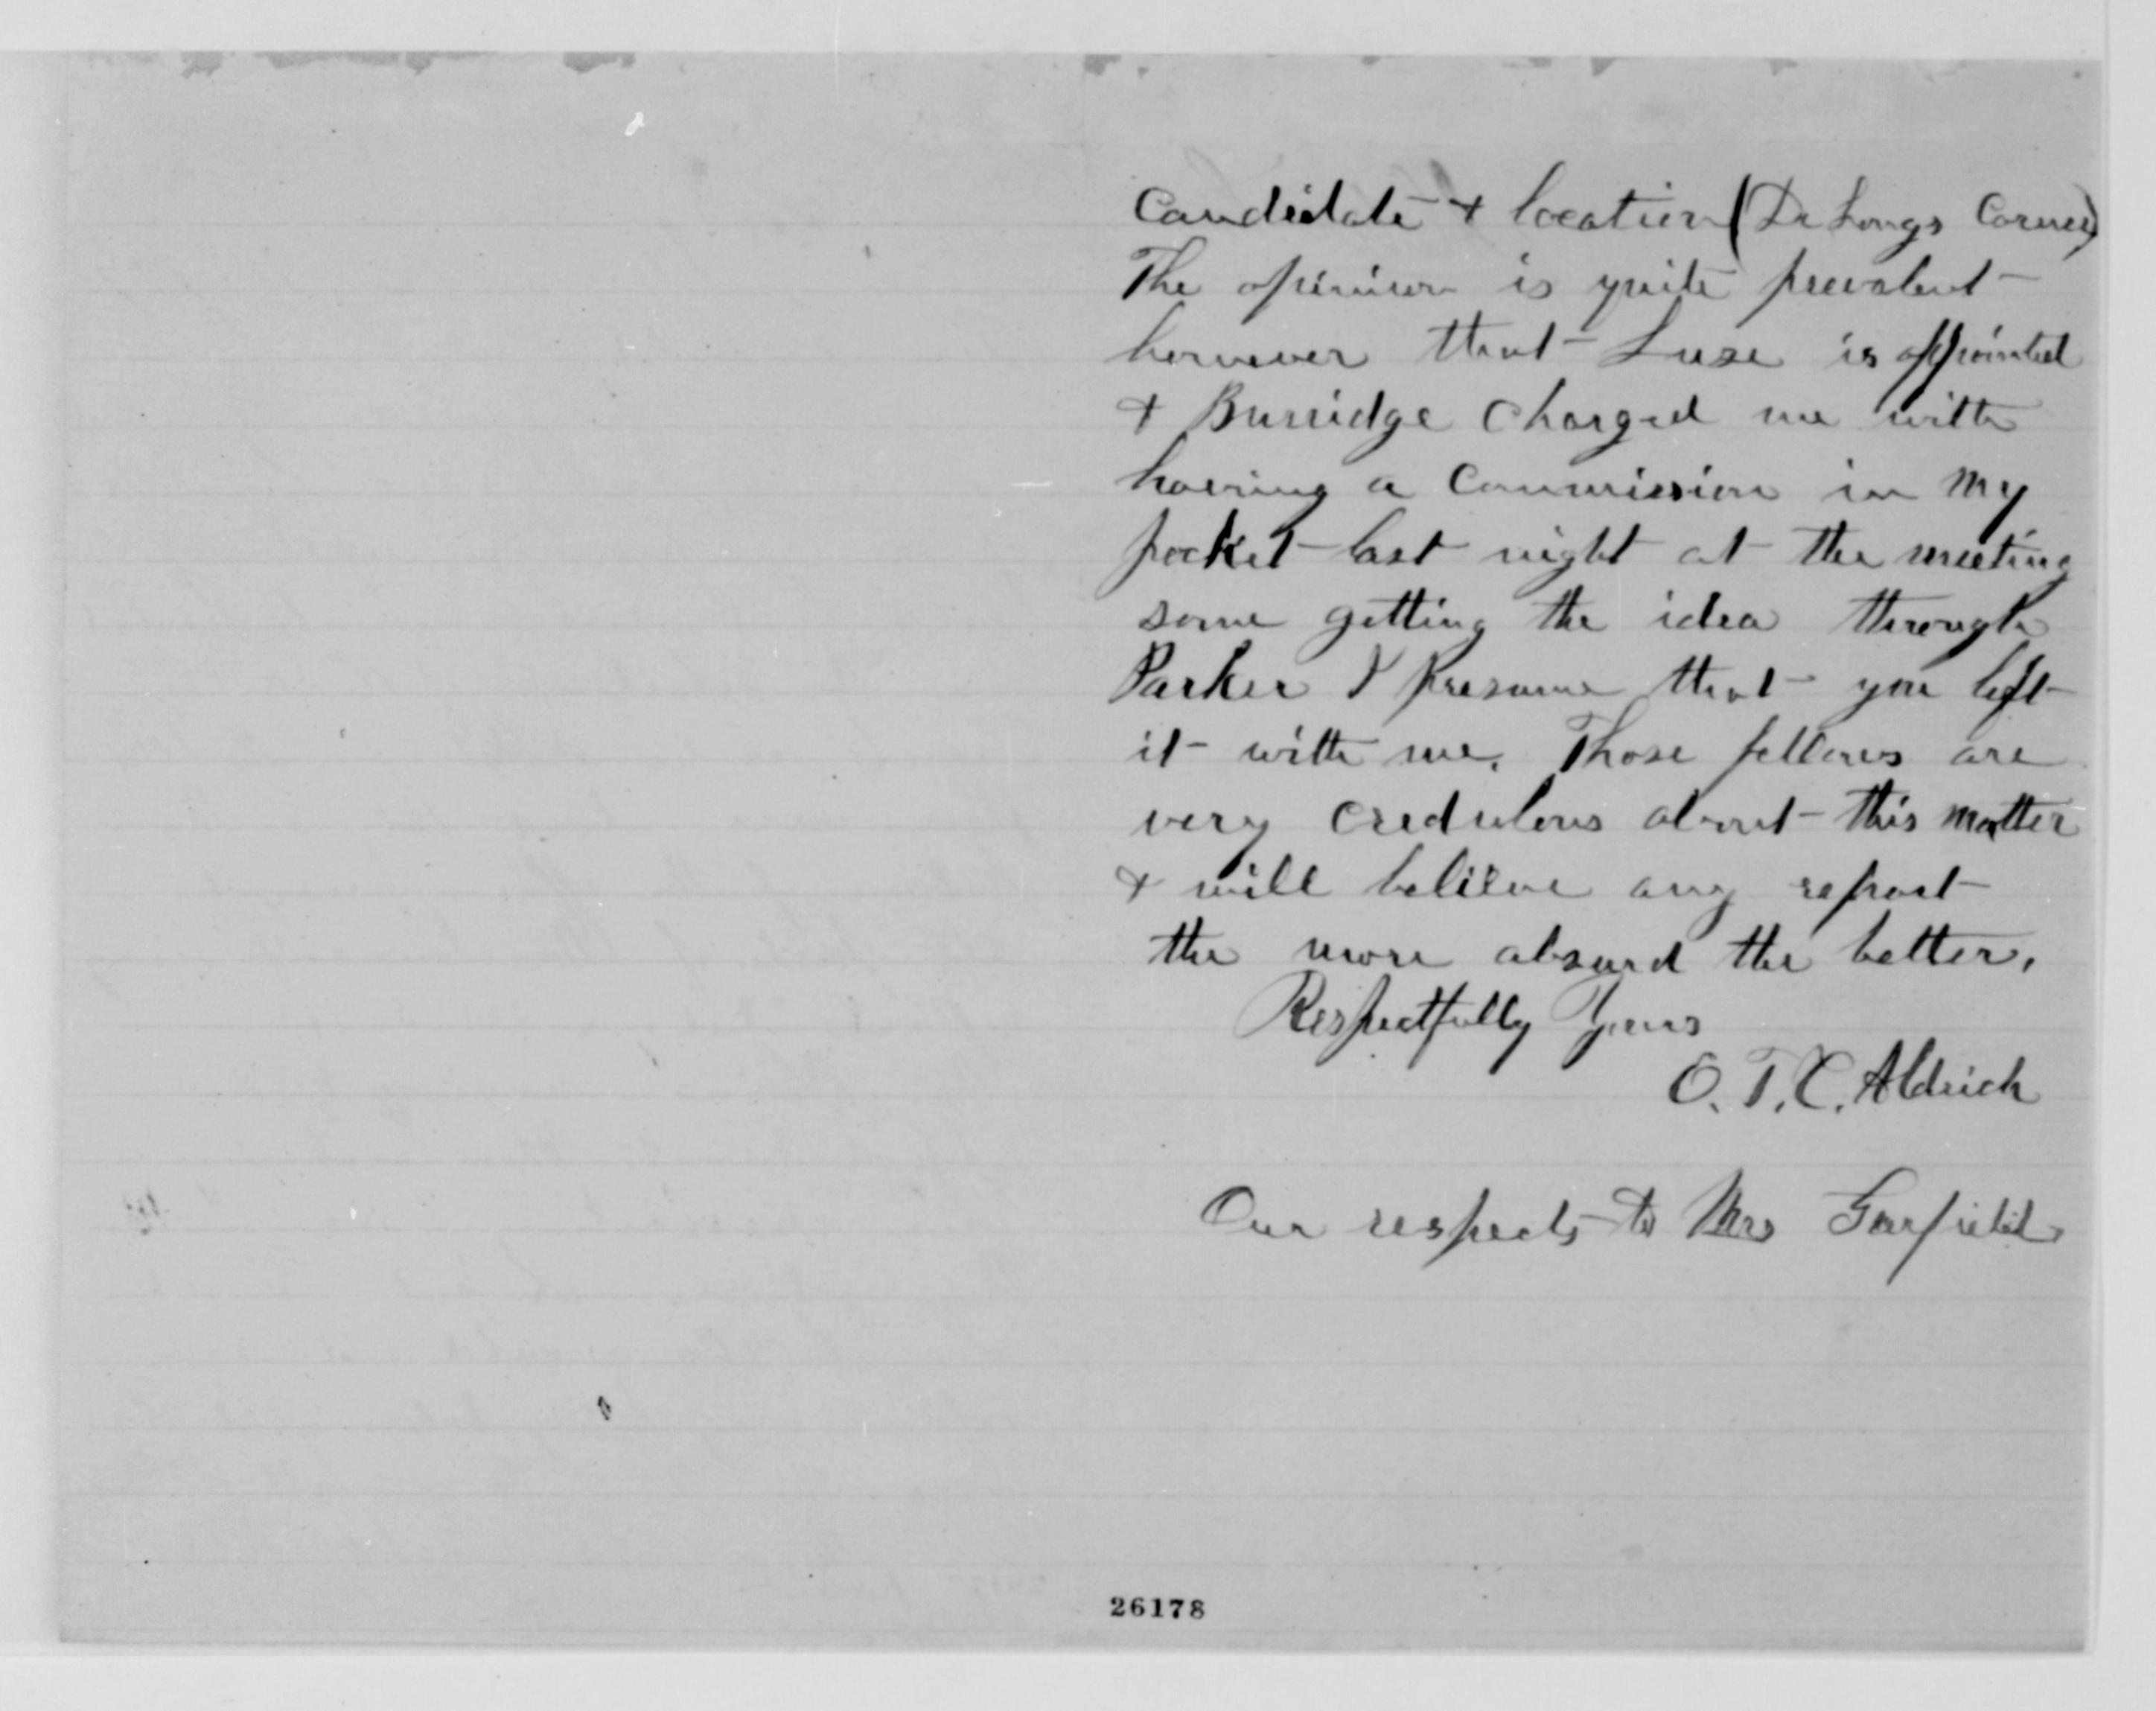 Candidate & location (Dr Longs Corner)
The opinion is quite prevalent
however that Luse is appointed
& Burridge charged me with
having a commission in my
pocket last night at the meeting
some getting the idea through
Parker I presume that you left
it with me. Those fellows are
very credulous about this matter
& will believe any report
the more absurd the better.
Respectfully Yours
O. T. C. Aldrich
Our respects to Mrs Garfield
26178